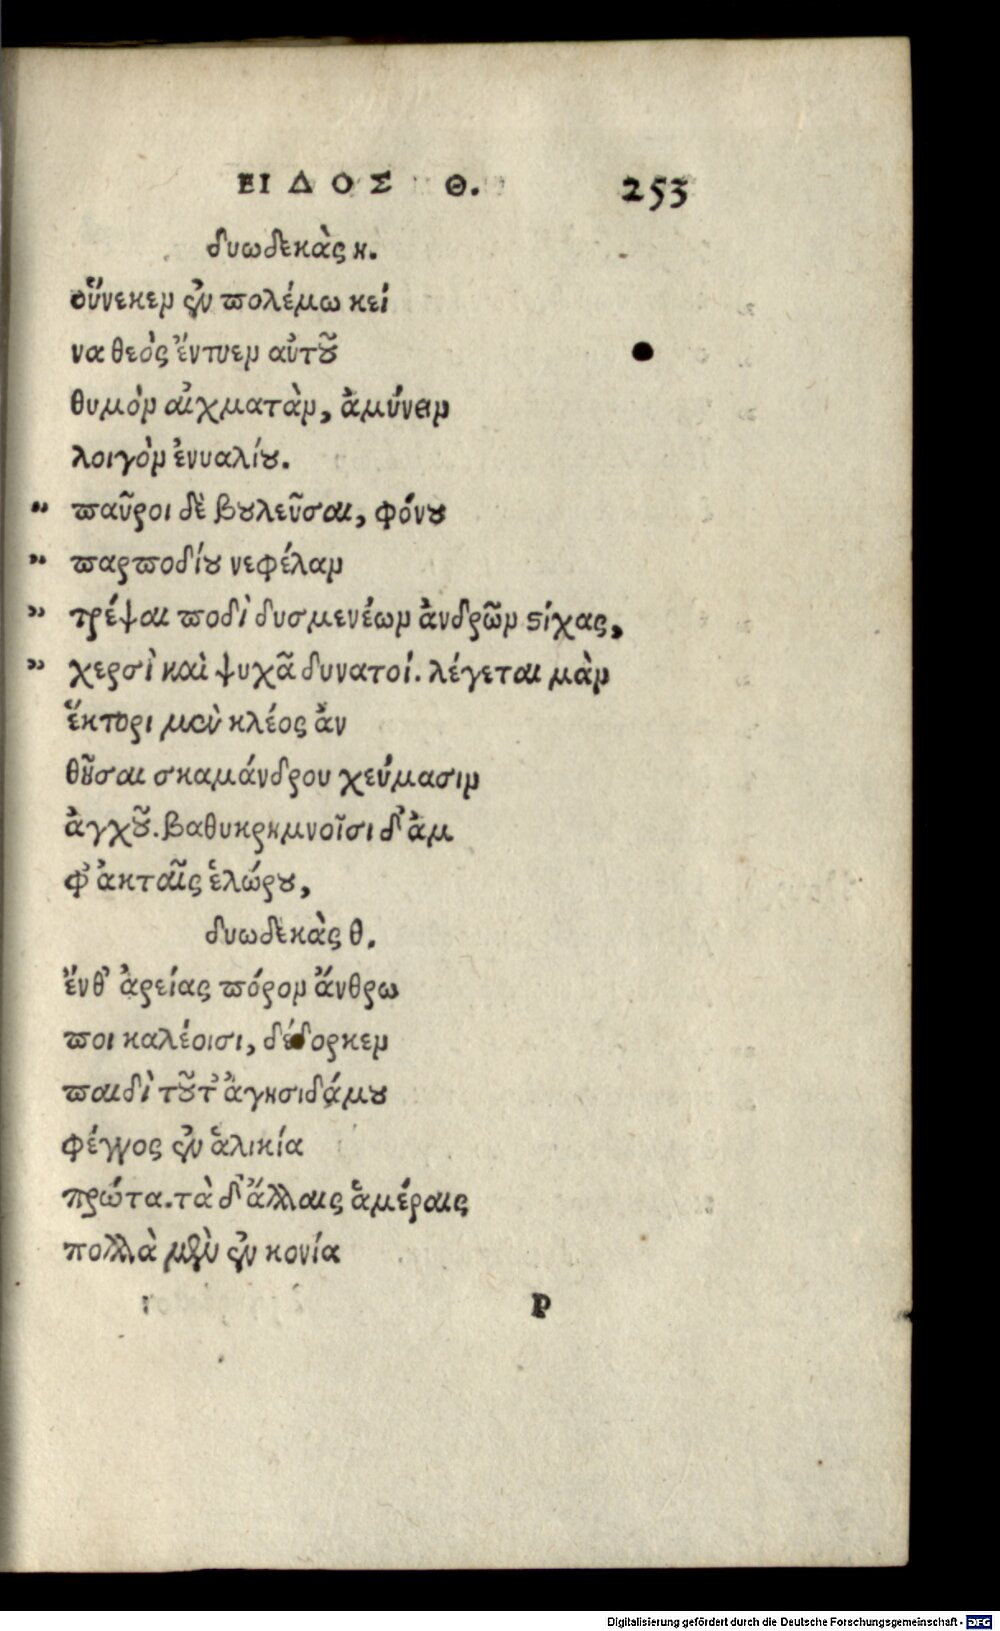 ΕΙΔΟΣ Θ. 253
δυωδεκὰς η.
οὕνεκεν ἐν πολέμω κεί
να θεὸς ἔντυεν αὐτοῦ
θυμὸν αἰχματὰν, ἀμύνειν
λοιγὸν ἐνυαλίου.
„ παῦροι δὲ βουλεῦσαι, φόνου
„ παρποδίου νεφέλαν
„ τρέψαι ποδὶ δυσμενέων ἀνδρῶν στίχας,
„ χερσὶ καὶ ψυχᾶ δυνατοί. λέγεται μὰν
ἕκτορι μὲν κλέος ἀν
θοῦσαι σκαμάνδρου χεύμασιν
ἀγχοῦ. βαθυκρημνοῖσι δ' ἀμ
φ' ἀκταῖς ἑλώρου,
δυωδεκὰς θ.
ἔνθ' ἀρείας πόρον ἄνθρω
ποι καλέοισι, δέδορκεν
παιδὶ τοῦτ' ἁγησιδάμου
φέγγος ἐν ἁλικία
πρώτα. τὰ δ' ἄλλαις ἁμέραις
πολλὰ μὲν ἐν κονία
P
Digitalisierung gefördert durch die Deutsche Forschungsgemeinschaft - DFG